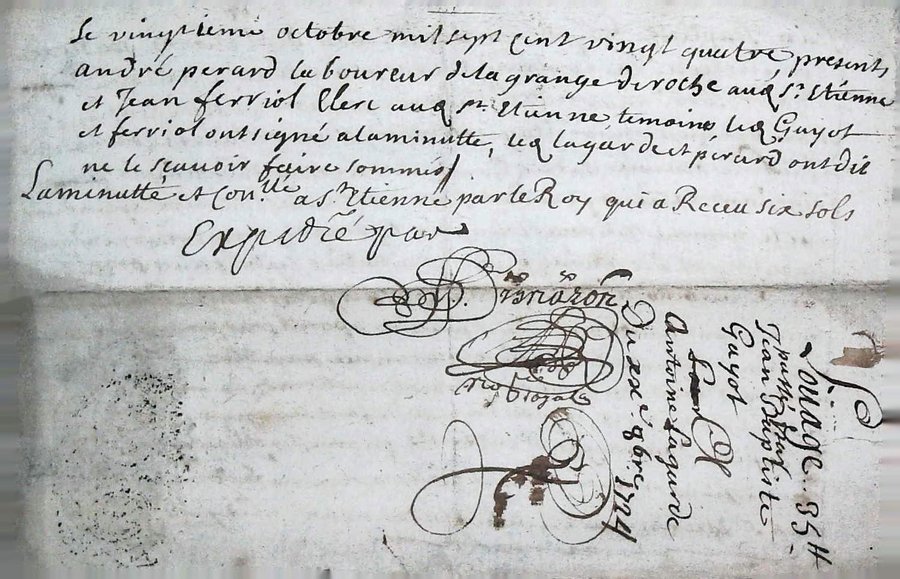 Le vingtieme octobre mil sept cent vingt quatre, presents
andré perard laboureur de la grange de roche aud St Etienne
et Jean ferriol Clerc aud St Etienne, temoins, led Gayot
et ferriol ont signé a la minutte, led lagarde et perard ont dit
ne le scavoir faire sommés
La minutte et Conlle a St Etienne par le Roy qui a Receu six sols
Expedié par
Nore Royal
Louage. 35 tt
passé par
Jean Baptiste
Gayot
Antoine Lagarde
Du xxe 8bre 1724